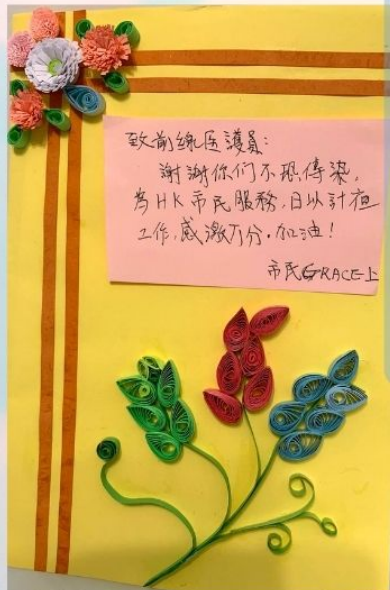 致前線医護員:
謝謝你们不恐傳染,
為HK市民服務,日以計夜
工作,感激万分.加油!
市民GRACE上